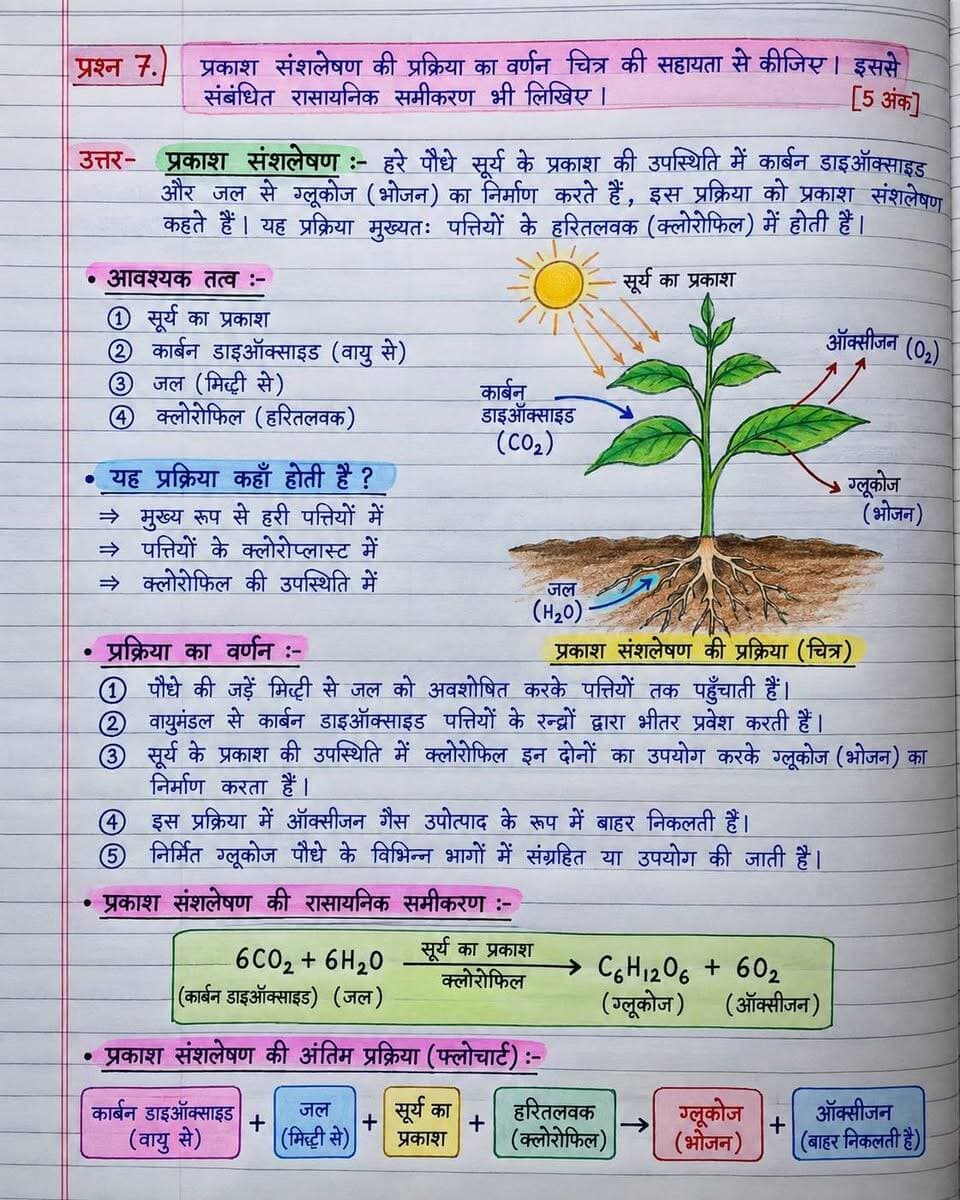 प्रश्न 7.)
प्रकाश संशलेषण की प्रक्रिया का वर्णन चित्र की सहायता से कीजिए। इससे
संबंधित रासायनिक समीकरण भी लिखिए।
[5 अंक]
उत्तर- प्रकाश संशलेषण :- हरे पौधे सूर्य के प्रकाश की उपस्थिति में कार्बन डाइऑक्साइड
और जल से ग्लूकोज (भोजन) का निर्माण करते हैं, इस प्रक्रिया को प्रकाश संशलेषण
कहते हैं। यह प्रक्रिया मुख्यतः पत्तियों के हरितलवक (क्लोरोफिल) में होती हैं।
• आवश्यक तत्व :-
① सूर्य का प्रकाश
② कार्बन डाइऑक्साइड (वायु से)
③ जल (मिट्टी से)
④ क्लोरोफिल (हरितलवक)
सूर्य का प्रकाश
ऑक्सीजन (O₂)
कार्बन
डाइऑक्साइड
(CO₂)
ग्लूकोज
(भोजन)
जल
(H₂O)
प्रकाश संशलेषण की प्रक्रिया (चित्र)
• यह प्रक्रिया कहाँ होती है ?
⇒ मुख्य रूप से हरी पत्तियों में
⇒ पत्तियों के क्लोरोप्लास्ट में
⇒ क्लोरोफिल की उपस्थिति में
• प्रक्रिया का वर्णन :-
① पौधे की जड़ें मिट्टी से जल को अवशोषित करके पत्तियों तक पहुँचाती हैं।
② वायुमंडल से कार्बन डाइऑक्साइड पत्तियों के रन्ध्रों द्वारा भीतर प्रवेश करती हैं।
③ सूर्य के प्रकाश की उपस्थिति में क्लोरोफिल इन दोनों का उपयोग करके ग्लूकोज (भोजन) का
निर्माण करता हैं।
④ इस प्रक्रिया में ऑक्सीजन गैस उपोत्पाद के रूप में बाहर निकलती हैं।
⑤ निर्मित ग्लूकोज पौधे के विभिन्न भागों में संग्रहित या उपयोग की जाती है।
• प्रकाश संशलेषण की रासायनिक समीकरण :-
सूर्य का प्रकाश
6CO₂ + 6H₂O → C₆H₁₂O₆ + 6O₂
क्लोरोफिल
(कार्बन डाइऑक्साइड) (जल) (ग्लूकोज) (ऑक्सीजन)
• प्रकाश संशलेषण की अंतिम प्रक्रिया (फ्लोचार्ट) :-
कार्बन डाइऑक्साइड
(वायु से)
+
जल
(मिट्टी से)
+
सूर्य का
प्रकाश
+
हरितलवक
(क्लोरोफिल)
→
ग्लूकोज
(भोजन)
+
ऑक्सीजन
(बाहर निकलती है)